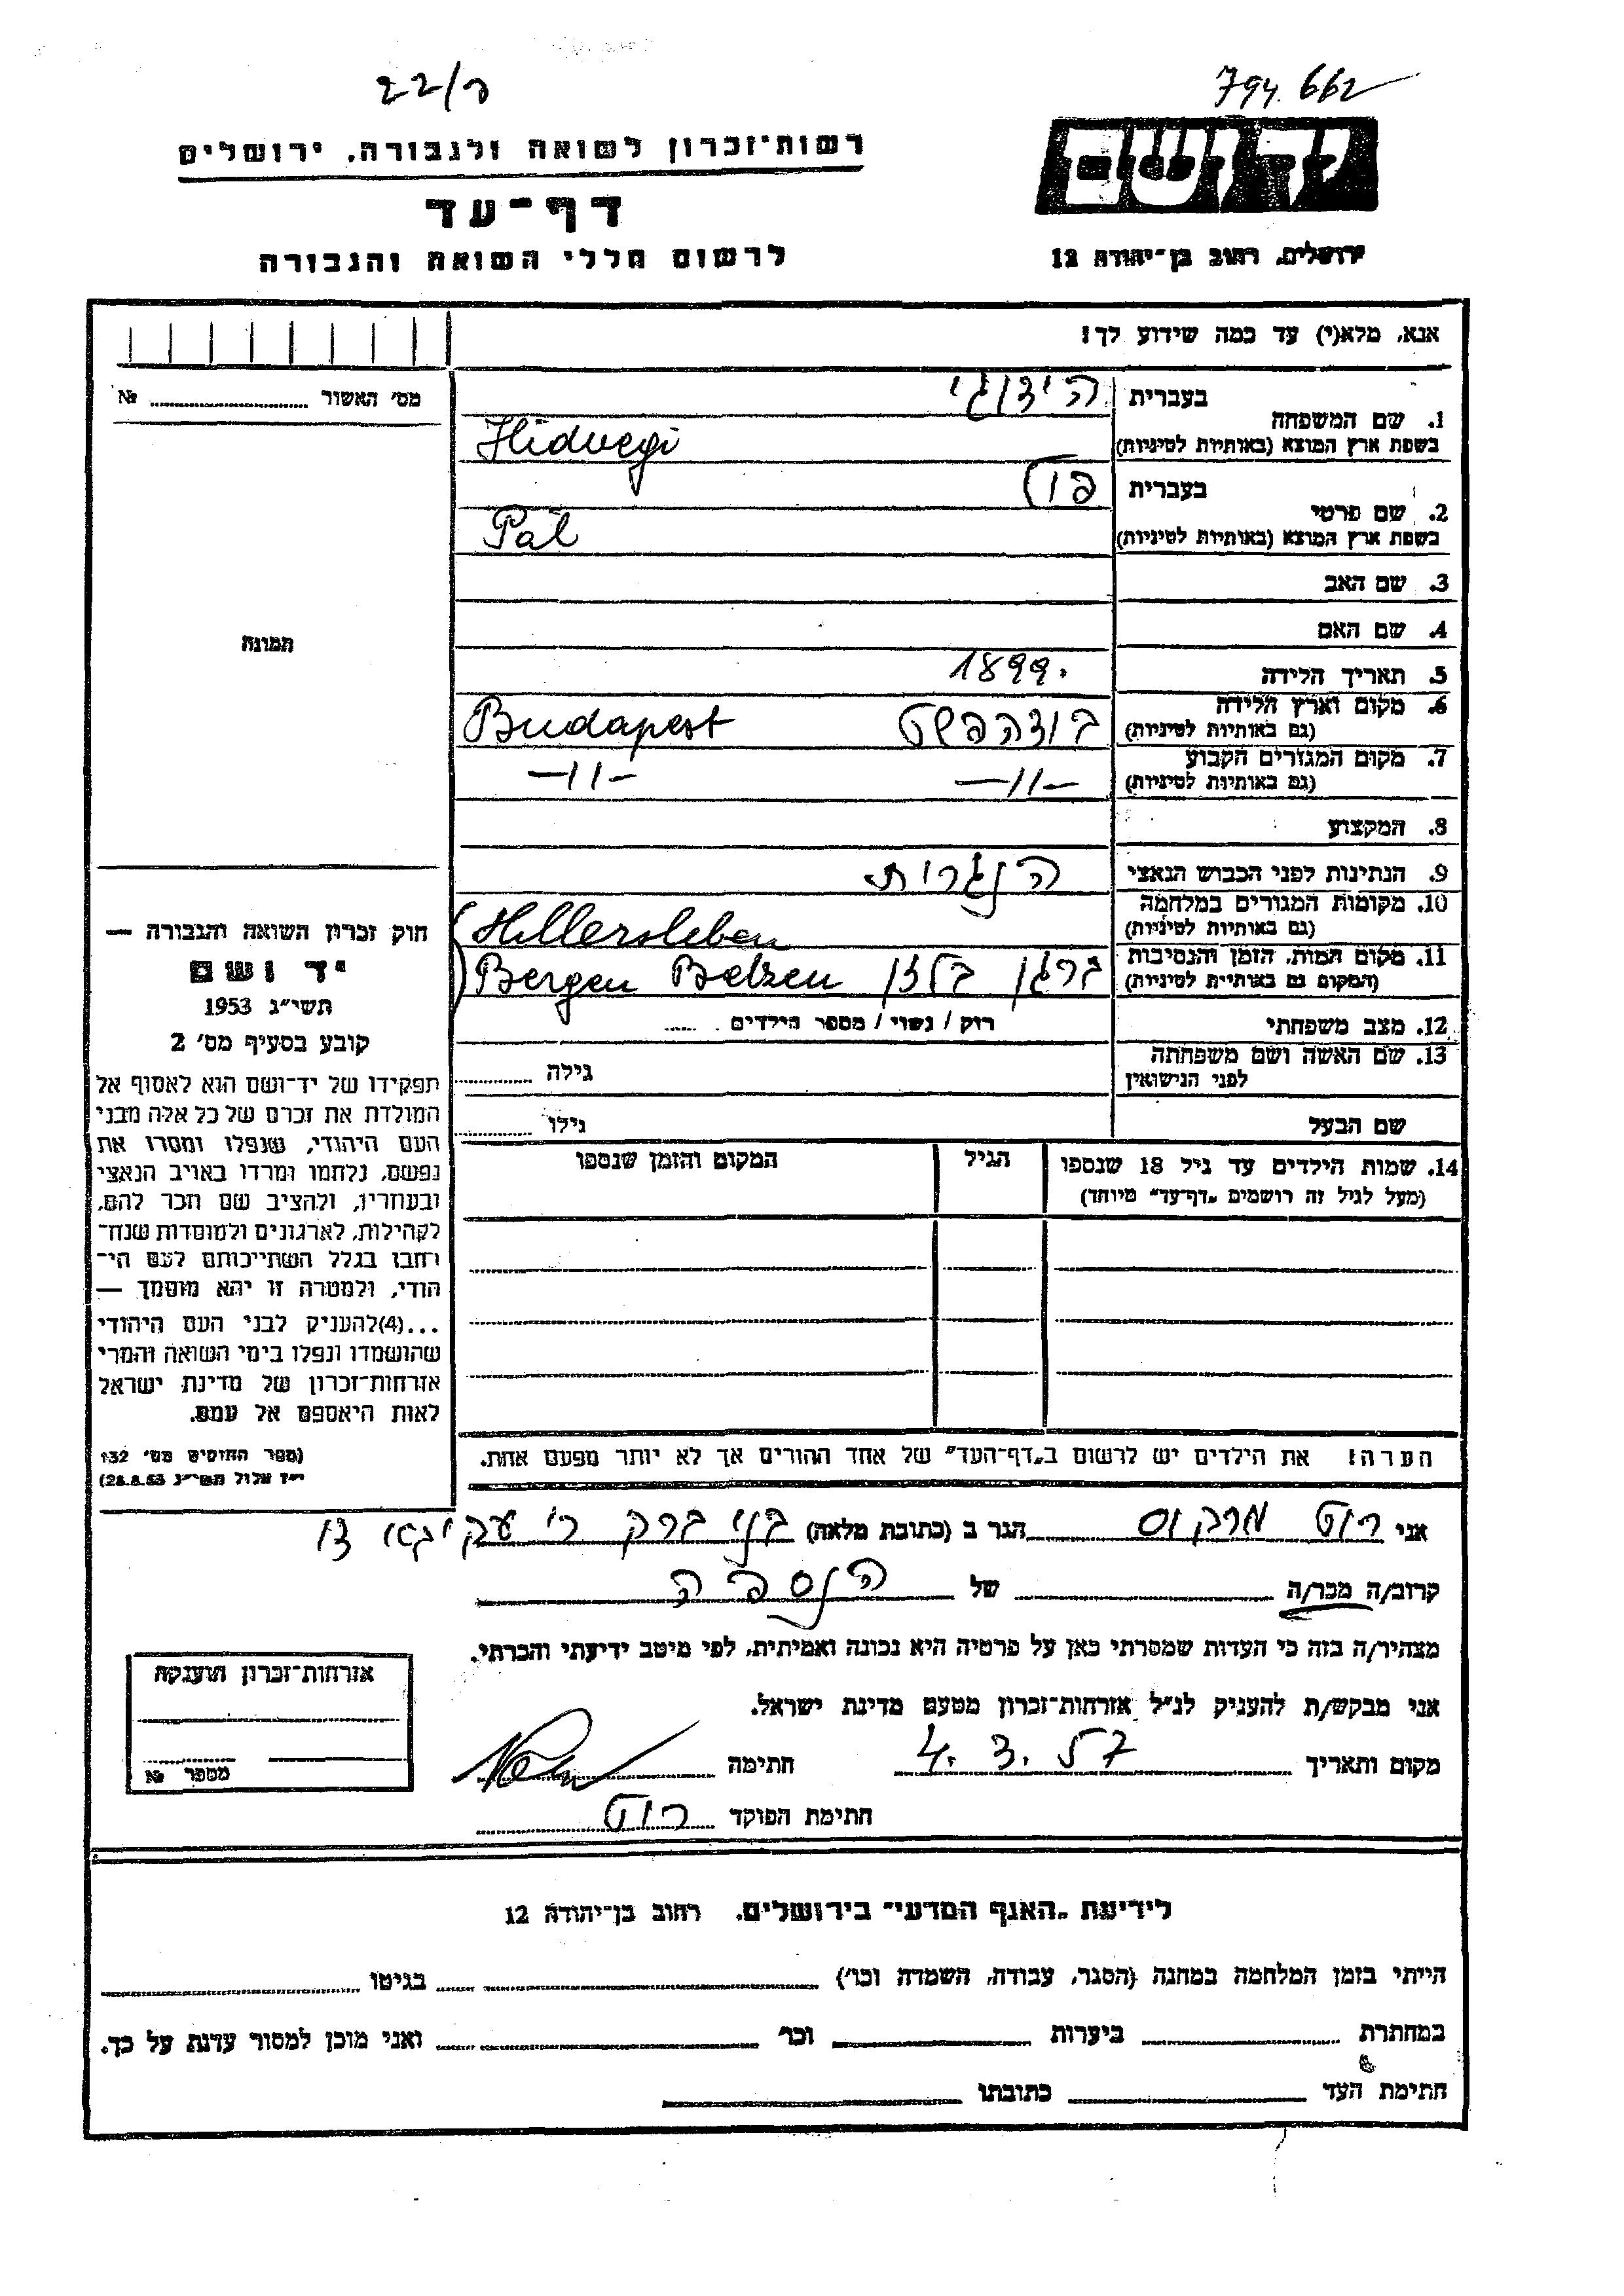 22/ק
794.662
רשות־זכרון לשואה ולגבורה, ירושלים
יד ושם
דף־עד
לרשום חללי השואה והגבורה
ירושלים, רחוב בן־יהודה 12
אנא, מלא(י) עד כמה שידוע לך!
מס׳ האשור № 
1. שם המשפחה
בעברית הידוגי
בשפת ארץ המוצא (באותיות לטיניות) Hidvegi
2. שם פרטי
בעברית פול
בשפת ארץ המוצא (באותיות לטיניות) Pál
3. שם האב
4. שם האם
תמונה
5. תאריך הלידה 1899.
6. מקום וארץ הלידה (גם באותיות לטיניות) בודהפשט Budapest
7. מקום המגורים הקבוע (גם באותיות לטיניות) —׀׀— —׀׀—
8. המקצוע
9. הנתינות לפני הכבוש הנאצי הנגרות
10. מקומות המגורים במלחמה (גם באותיות לטיניות) Hillersleben
11. מקום המות, הזמן והנסיבות (המקום גם באותיות לטיניות) ברגן בלזן Bergen Belzen
12. מצב משפחתי רוק / נשוי / מספר הילדים
13. שם האשה ושם משפחתה לפני הנישואין גילה
שם הבעל גילו
14. שמות הילדים עד גיל 18 שנספו
(מעל לגיל זה רושמים „דף־עד” מיוחד)
הגיל
המקום והזמן שנספו
הערה! את הילדים יש לרשום ב„דף־העד” של אחד ההורים אך לא יותר מפעם אחת.
חוק זכרון השואה והגבורה —
יד ושם
תשי״ג 1953
קובע בסעיף מס׳ 2
תפקידו של יד־ושם הוא לאסוף אל
המולדת את זכרם של כל אלה מבני
העם היהודי, שנפלו ומסרו את
נפשם, נלחמו ומרדו באויב הנאצי
ובעוזריו, ולהציב שם וזכר להם,
לקהילות, לארגונים ולמוסדות שנח־
רבו בגלל השתייכותם לעם הי־
הודי, ולמטרה זו יהא מוסמך —
...(4)להעניק לבני העם היהודי
שהושמדו ונפלו בימי השואה והמרי
אזרחות־זכרון של מדינת ישראל
לאות היאספם אל עמם.
(ספר החוקים מס׳ 132
י״ז אלול תשי״ג 28.8.53)
אני רוט מרקוס הגר ב (כתובת מלאה) בני ברק ר׳ עקיבא
קרוב/ה מכר/ה של הנספה
מצהיר/ה בזה כי העדות שמסרתי כאן על פרטיה היא נכונה ואמיתית, לפי מיטב ידיעתי והכרתי.
אני מבקש/ת להעניק לנ״ל אזרחות־זכרון מטעם מדינת ישראל.
מקום ותאריך 4. 3. 57 חתימה
חתימת הפוקד רוט
אזרחות־זכרון הוענקה
מספר №
לידיעת „האגף המדעי” בירושלים, רחוב בן־יהודה 12
הייתי בזמן המלחמה במחנה (הסגר, עבודה, השמדה וכו׳) בגיטו
במחתרת ביערות וכו׳ ואני מוכן למסור עדות על כך.
חתימת העד כתובתו